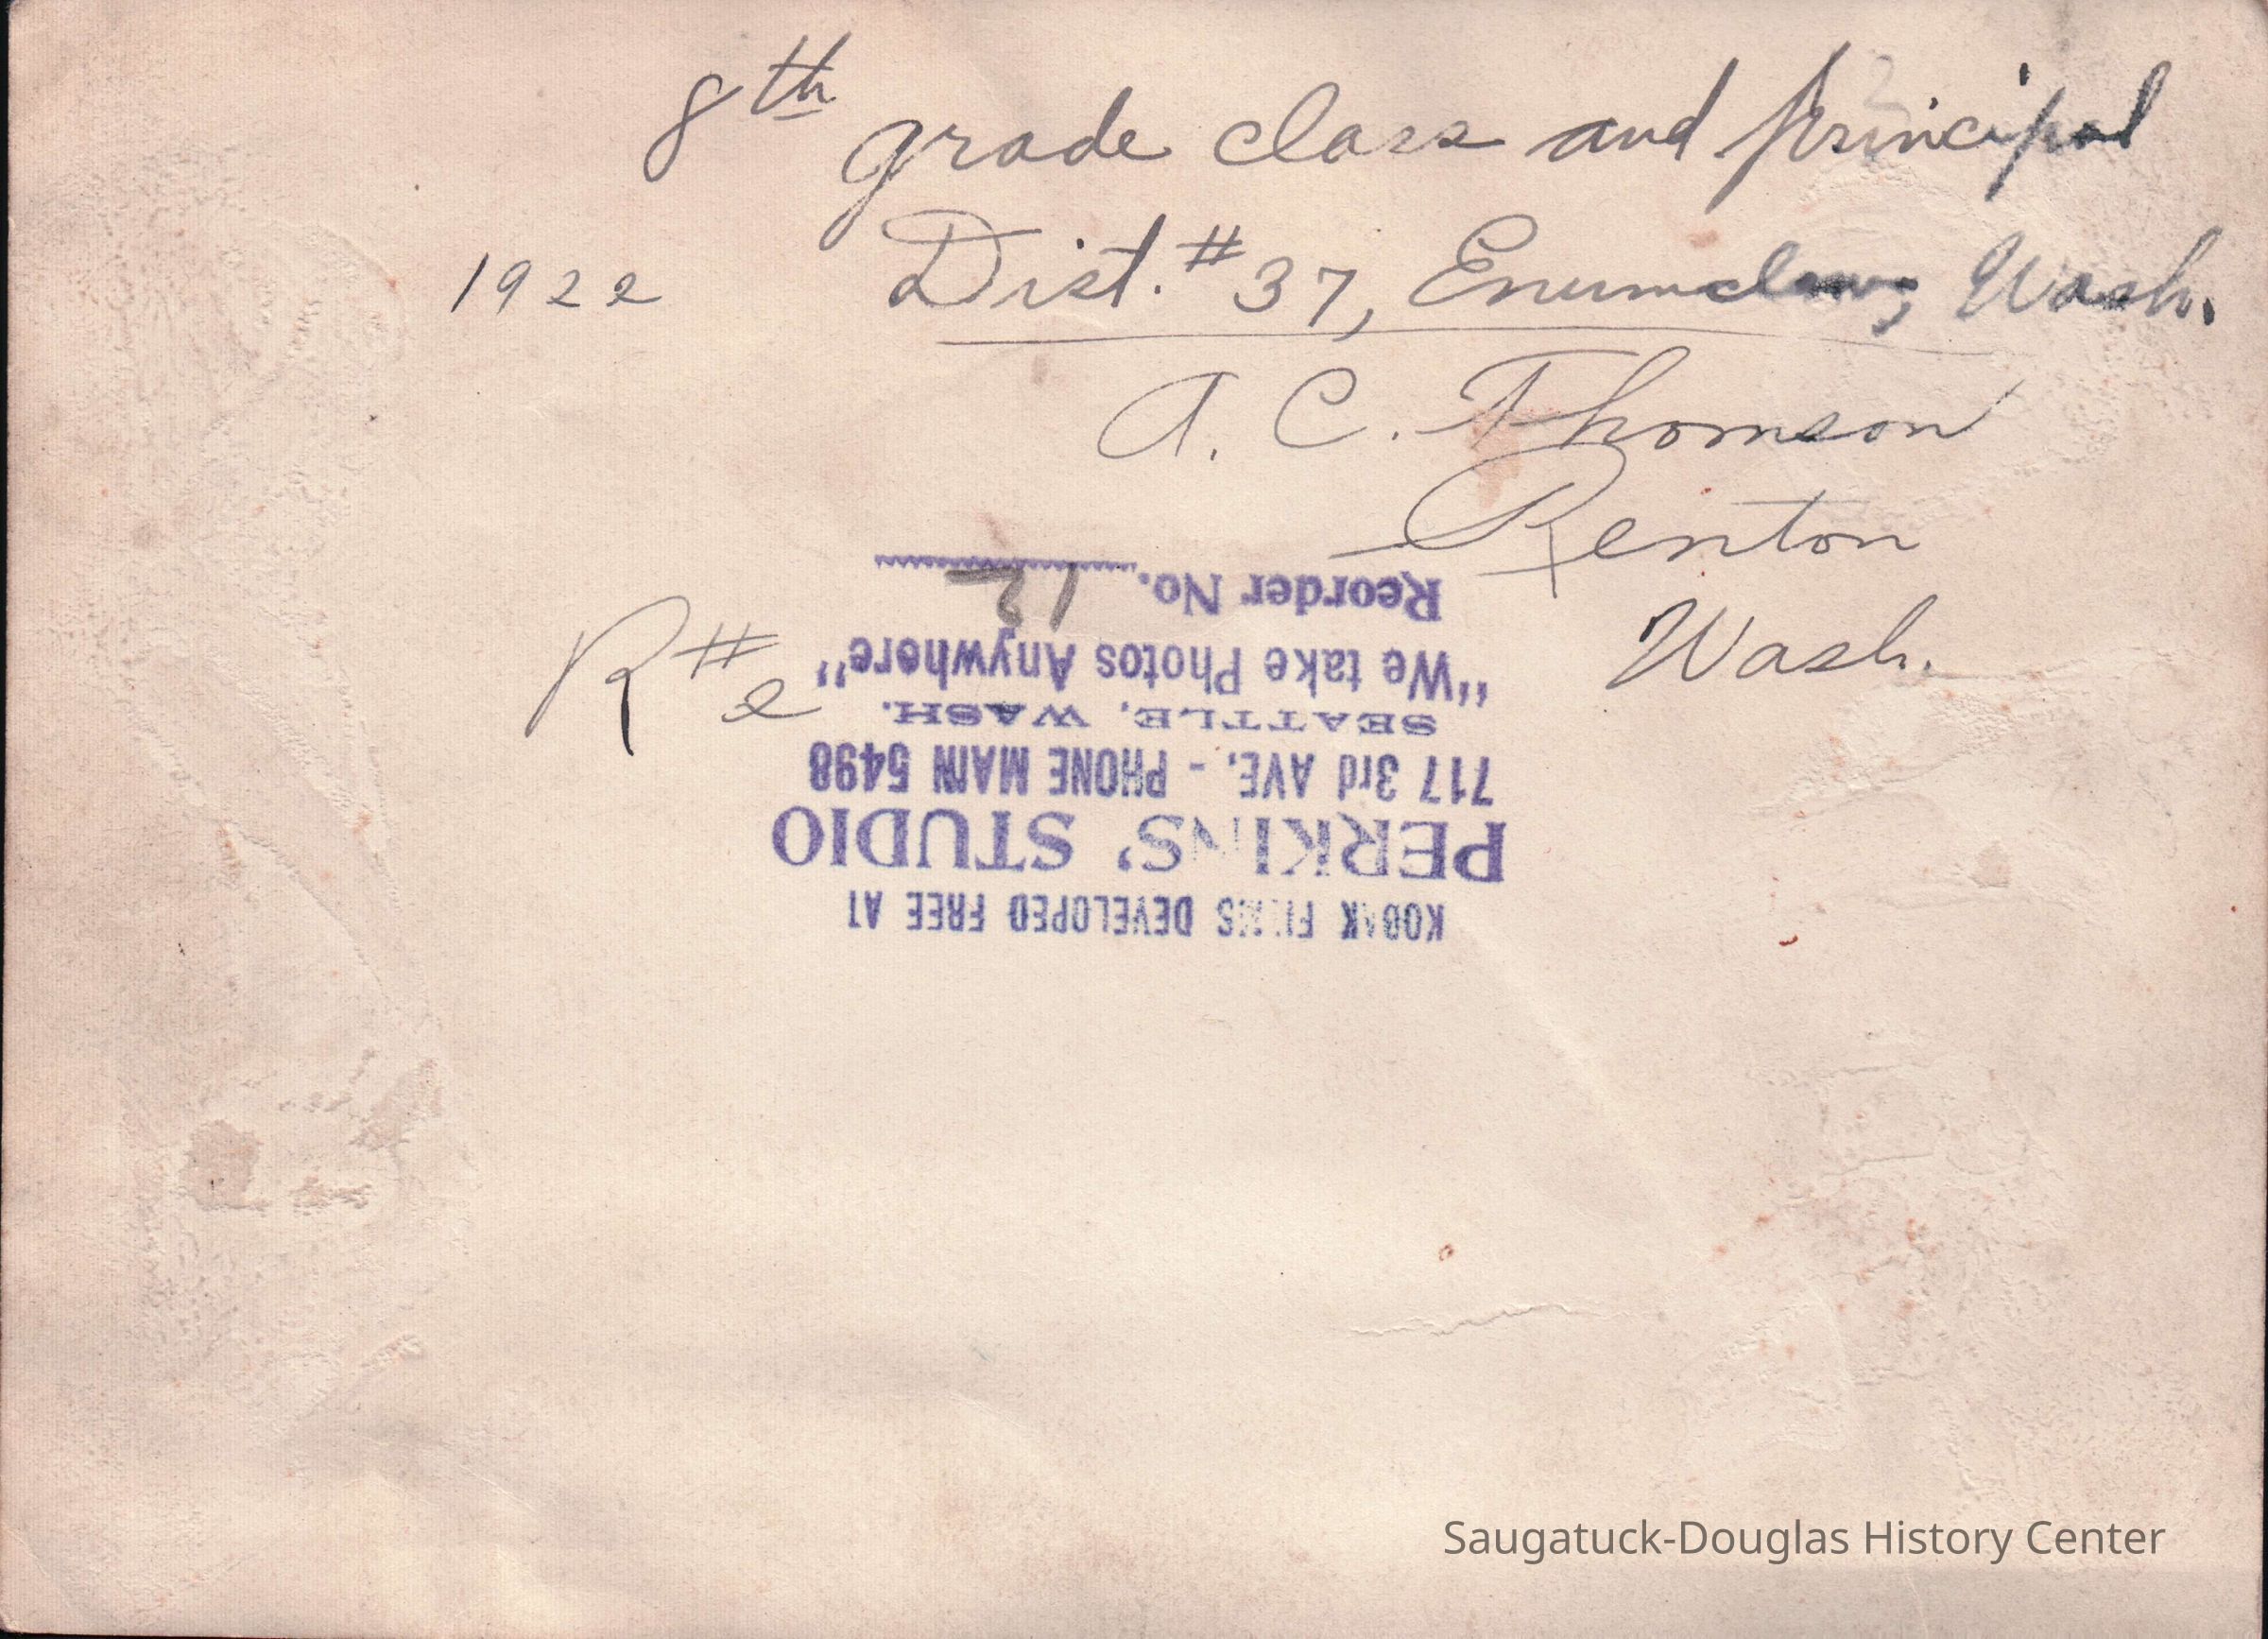 8th grade class and Principal
1922 Dist. #37, Enumclaw, Wash.
A. C. Thomson
Renton
Wash.
R#2
KODAK FILMS DEVELOPED FREE AT
PERKINS' STUDIO
717 3rd AVE. - PHONE MAIN 5498
SEATTLE, WASH.
"We take Photos Anywhere"
Reorder No. 12
Saugatuck-Douglas History Center